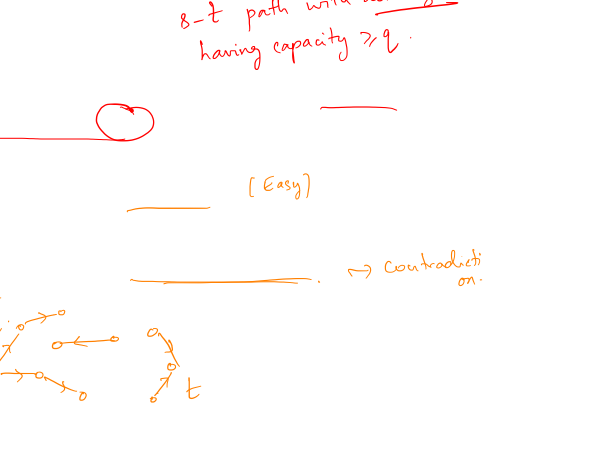 s-t path with
having capacity ≥ q.
[Easy]
↪ Contradicti
on.
t